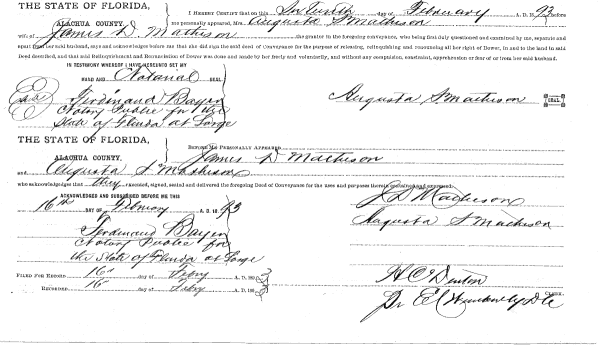 THE STATE OF FLORIDA,
ALACHUA COUNTY.
I HEREBY CERTIFY that on this Sixteenth day of February A. D. 1893 before
me personally appeared Mrs. Augusta S Matheson
wife of James D. Matheson the grantor in the foregoing conveyance, who being first duly questioned and examined by me, separate and
apart from her said husband, says and acknowledges before me that she did sign the said deed of Conveyance for the purpose of releasing, relinquishing and renouncing all her right of Dower, in and to the land in said
Deed described, and that said Relinquishment and Renunciation of Dower was done and made by her freely and voluntarily, and without any compulsion, constraint, apprehension or fear of or from her said husband.
IN TESTIMONY WHEREOF I HAVE HEREUNTO SET MY
HAND AND Notarial SEAL
Ferdinand Bayer
Notary Public for the
State of Florida at Large
Augusta S Matheson SEAL
THE STATE OF FLORIDA,
ALACHUA COUNTY.
BEFORE ME PERSONALLY APPEARED
James D Matheson
and Augusta S Matheson
who acknowledges that they executed, signed, sealed and delivered the foregoing Deed of Conveyance for the uses and purposes therein contained and expressed.
ACKNOWLEDGED AND SUBSCRIBED BEFORE ME THIS
16th DAY OF February A. D. 1893
J D Matheson
Augusta S Matheson
Ferdinand Bayer
Notary Public for
the State of Florida at Large
FILED FOR RECORD 16" day of Feby A. D. 1893
RECORDED 16" day of Feby A. D. 1893
H C Denton CLERK.